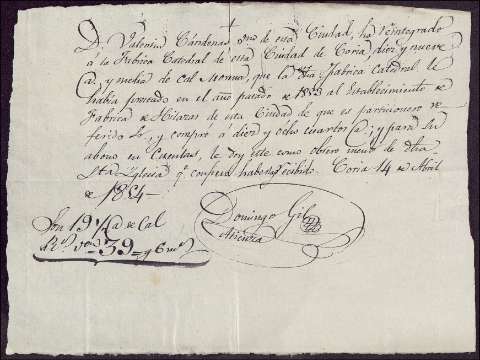 D. Valentin Cárdenas, vno de esta Ciudad, ha reintegrado
à la Fabrica Catedral de esta Ciudad de Coria, diez y nueve
@. y media de Cal Morena, que la Fabrica Catedral le
habia prestado en el año pasado de 1853 al Establecimiento de
Fabrica de de esta Ciudad de que es participonero re-
ferido Sr, y compró á diez y ocho cuartos @; y para su
abono en Cuentas, le doy este como obrero menor de dicha
Sta. Yglesia q. confiesa haberlo recibido. Coria 14 de Abril
de 1854
Son 19 ½ @ de Cal
39 y 6 ms
Domingo Gil
Atienza